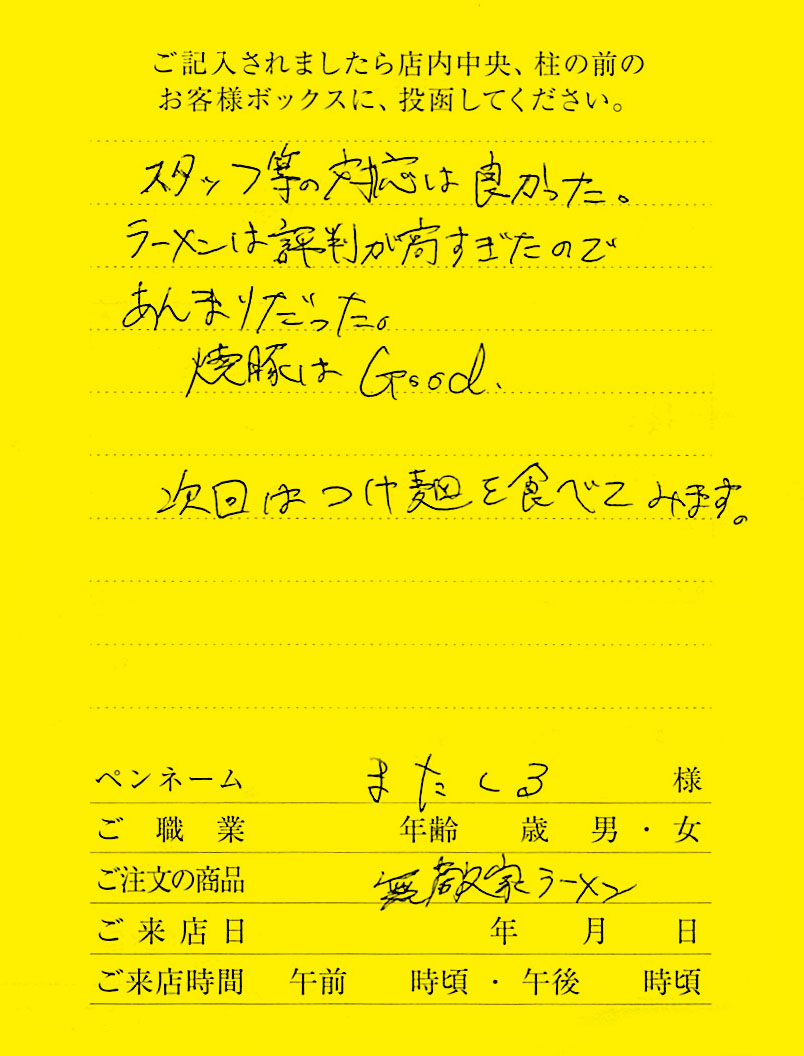 ご記入されましたら店内中央、柱の前の
お客様ボックスに、投函してください。
スタッフ等の対応は良かった。
ラーメンは評判が高すぎたので
あんまりだった。
焼豚は Good.
次回はつけ麺を食べてみます。
ペンネーム またくる 様
ご職業 年齢 歳 男・女
ご注文の商品 無敵家ラーメン
ご来店日 年 月 日
ご来店時間 午前 時頃・午後 時頃